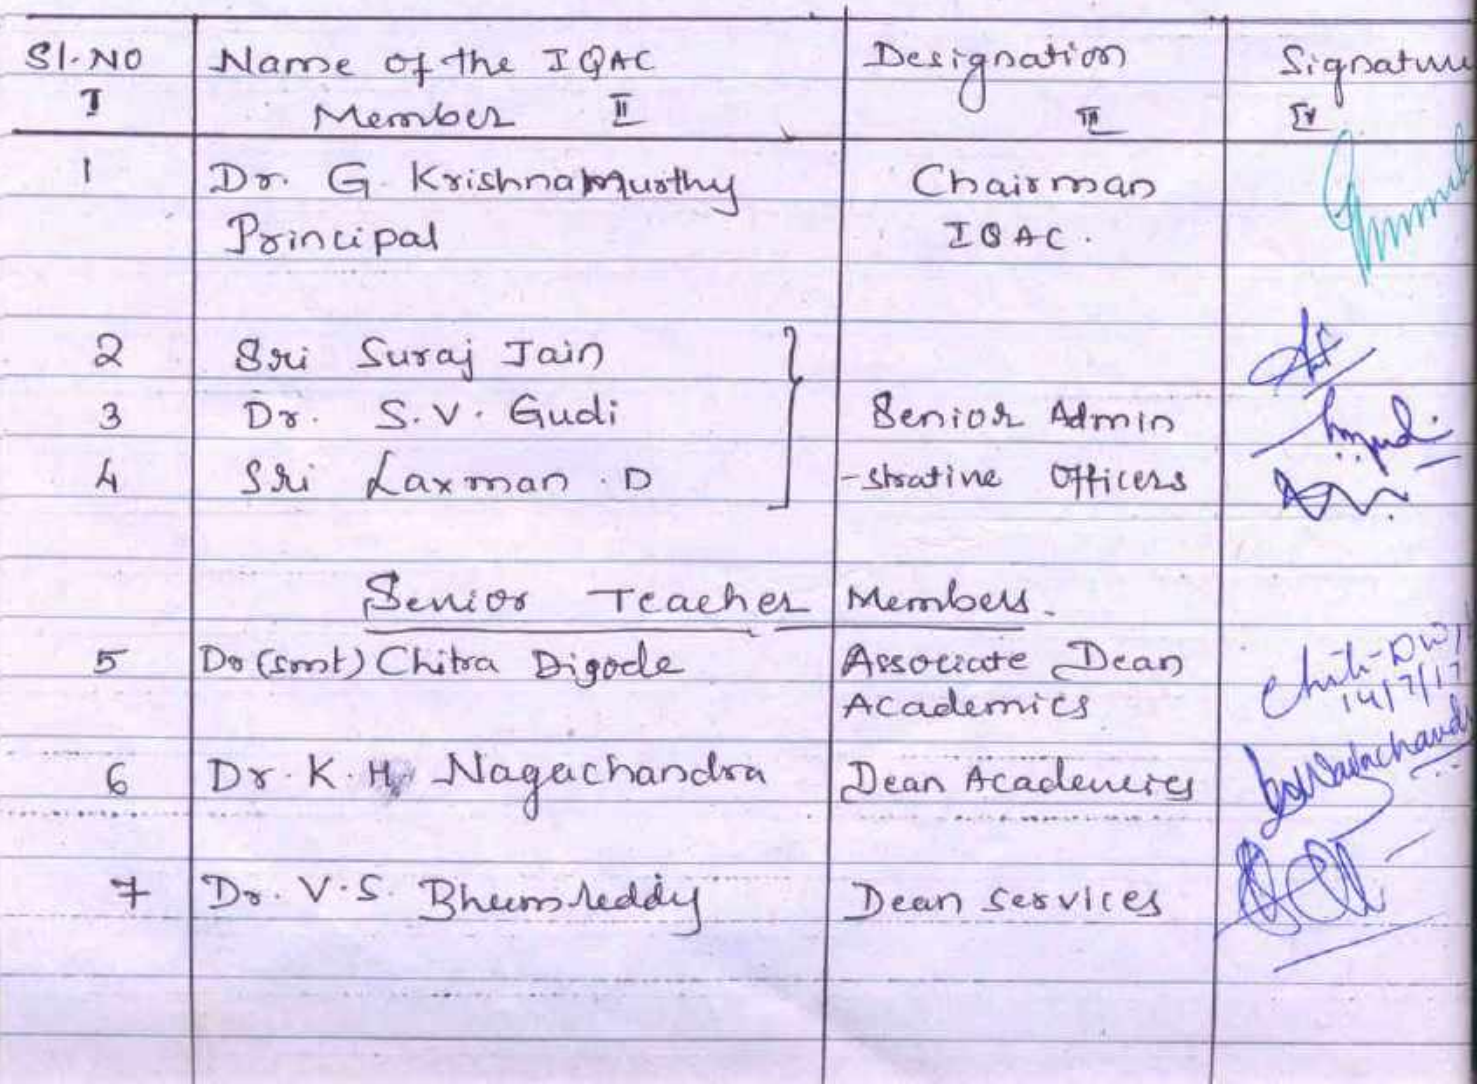 Sl.NO Name of the IQAC Designation Signature
I Member II III IV
1 Dr. G. Krishnamurthy Chairman
Principal IQAC.
2 Sri Suraj Jain
3 Dr. S.V. Gudi Senior Admin
4 Sri Laxman .D -strative Officers
Senior Teacher Members.
5 Dr (Smt) Chitra Digode Associate Dean
Academics 14/7/17
6 Dr. K.H. Nagachandra Dean Academics
7 Dr. V.S. Bhumreddy Dean Services